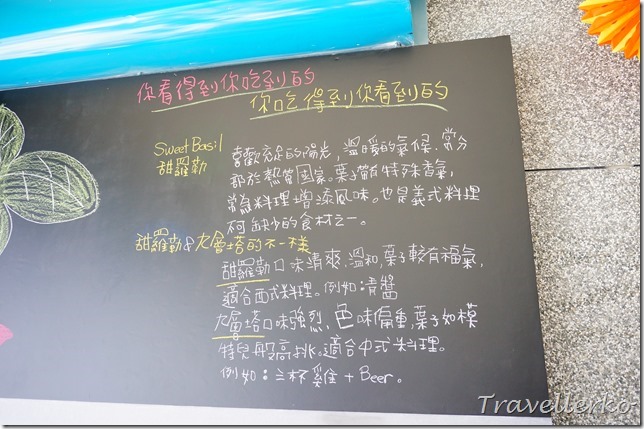 你看得到你吃到的
你吃得到你看到的
Sweet Basil
甜羅勒
喜歡充足的陽光，溫暖的氣候。常分
部於熱帶國家。葉子帶有特殊香氣，
常為料理增添風味。也是義式料理
不可缺少的食材之一。
甜羅勒&九層塔的不一樣
甜羅勒口味清爽、溫和，葉子較有福氣，
適合西式料理。例如：青醬
九層塔口味強烈，色味偏重，葉子如模
特兒般高挑。適合中式料理。
例如：三杯雞 + Beer。
Travellerko